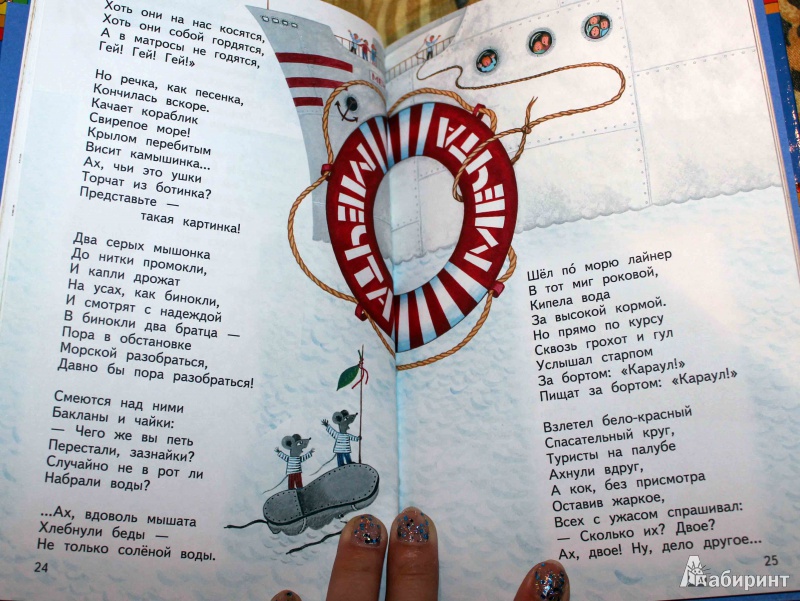 Хоть они на нас косятся,
Хоть они собой гордятся,
А в матросы не годятся,
Гей! Гей! Гей!»
Но речка, как песенка,
Кончилась вскоре.
Качает кораблик
Свирепое море!
Крылом перебитым
Висит камышинка...
Ах, чьи это ушки
Торчат из ботинка?
Представьте —
такая картинка!
Два серых мышонка
До нитки промокли,
И капли дрожат
На усах, как бинокли,
И смотрят с надеждой
В бинокли два братца —
Пора в обстановке
Морской разобраться,
Давно бы пора разобраться!
Смеются над ними
Бакланы и чайки:
— Чего же вы петь
Перестали, зазнайки?
Случайно не в рот ли
Набрали воды?
...Ах, вдоволь мышата
Хлебнули беды —
Не только солёной воды.
24
МЕЧТА
МЕЧТА
Шёл по́ морю лайнер
В тот миг роковой,
Кипела вода
За высокой кормой.
Но прямо по курсу
Сквозь грохот и гул
Услышал старпом
За бортом: «Караул!»
Пищат за бортом: «Караул!»
Взлетел бело-красный
Спасательный круг,
Туристы на палубе
Ахнули вдруг,
А кок, без присмотра
Оставив жаркое,
Всех с ужасом спрашивал:
— Сколько их? Двое?
Ах, двое! Ну, дело другое...
25
Лабиринт